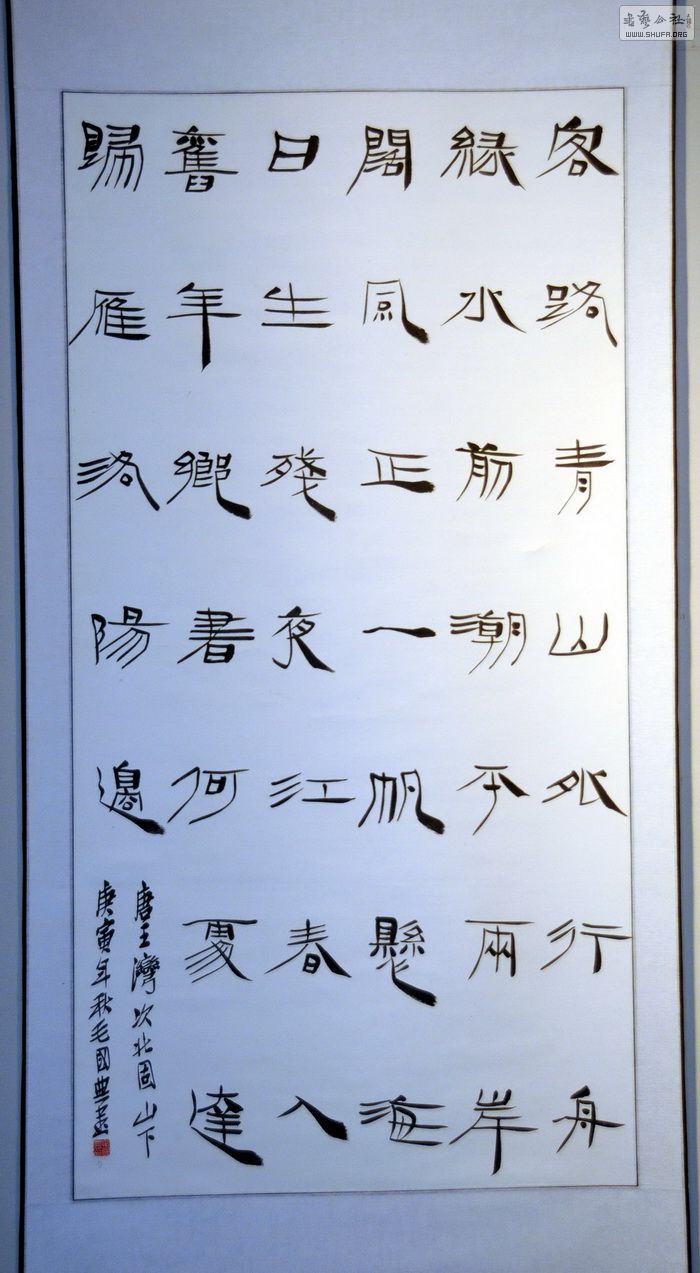 客路青山外行舟
緑水前潮平兩岸
闊風正一帆懸海
日生殘夜江春入
舊年鄉書何處達
歸雁洛陽邊
唐王灣次北固山下
庚寅年秋毛國典書
書藝公社
WWW.SHUFA.ORG